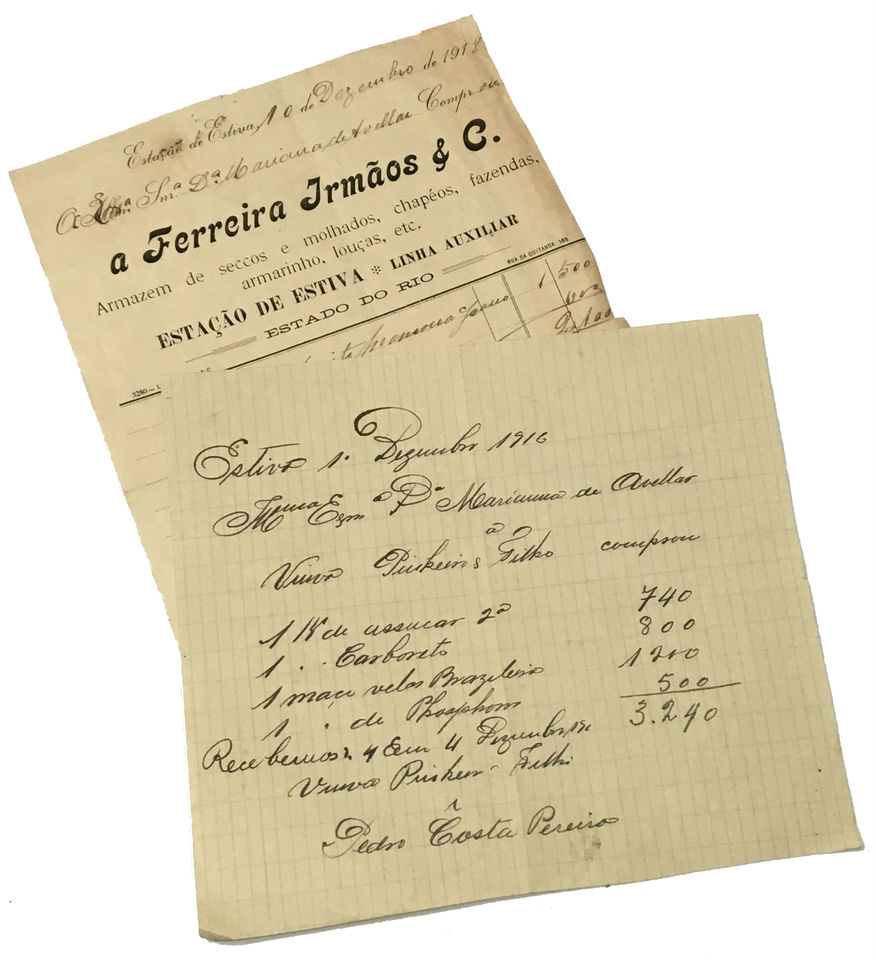 Estação de Estiva, 10 de Dezembro de 1918
A Exma. Snr.ª D.ª Marianna de Avellar Comprou
a Ferreira Irmãos & C.
Armazem de seccos e molhados, chapéos, fazendas,
armarinho, louças, etc.
ESTAÇÃO DE ESTIVA * LINHA AUXILIAR
ESTADO DO RIO
RUA DA QUITANDA 166
3280
1 500
2 100
Estiva 1º Dezembro 1916
Exmª Dª Marianna de Avellar
a
Viuva Pinheiro & Filho comprou
1 K de assucar 2ª 740
1 " Carboreto 800
1 maço velas Brazileira 1200
1 " de Phosphoros 500
3.240
Recebemos Em 4 Dezembro
Viuva Pinheiro Filho
Pedro Costa Pereira